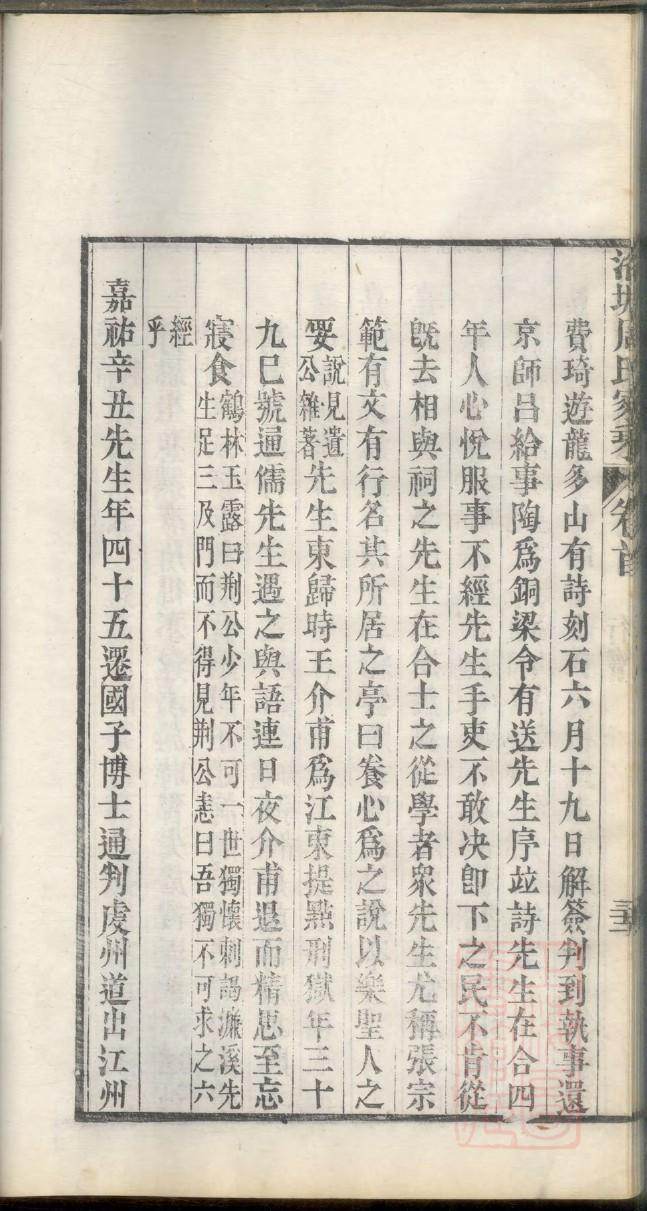 費琦遊龍多山有詩刻石六月十九日解簽判到執事還
京師呂給事陶爲銅梁令有送先生序竝詩先生在合四
年人心悅服事不經先生手吏不敢决卽下之民不肯從
旣去相與祠之先生在合士之從學者衆先生尤稱張宗
範有文有行名其所居之亭曰養心爲之說以樂聖人之
要說見遺公雜著先生東歸時王介甫爲江東提點刑獄年三十
九巳號通儒先生遇之與語連日夜介甫退而精思至忘
寢食鶴林玉露曰荆公少年不可一世獨懷刺謁濂溪先
生足三及門而不得見荆公恚曰吾獨不可求之六
經乎
嘉祐辛丑先生年四十五遷國子博士通判虔州道出江州
周氏家乘 卷首